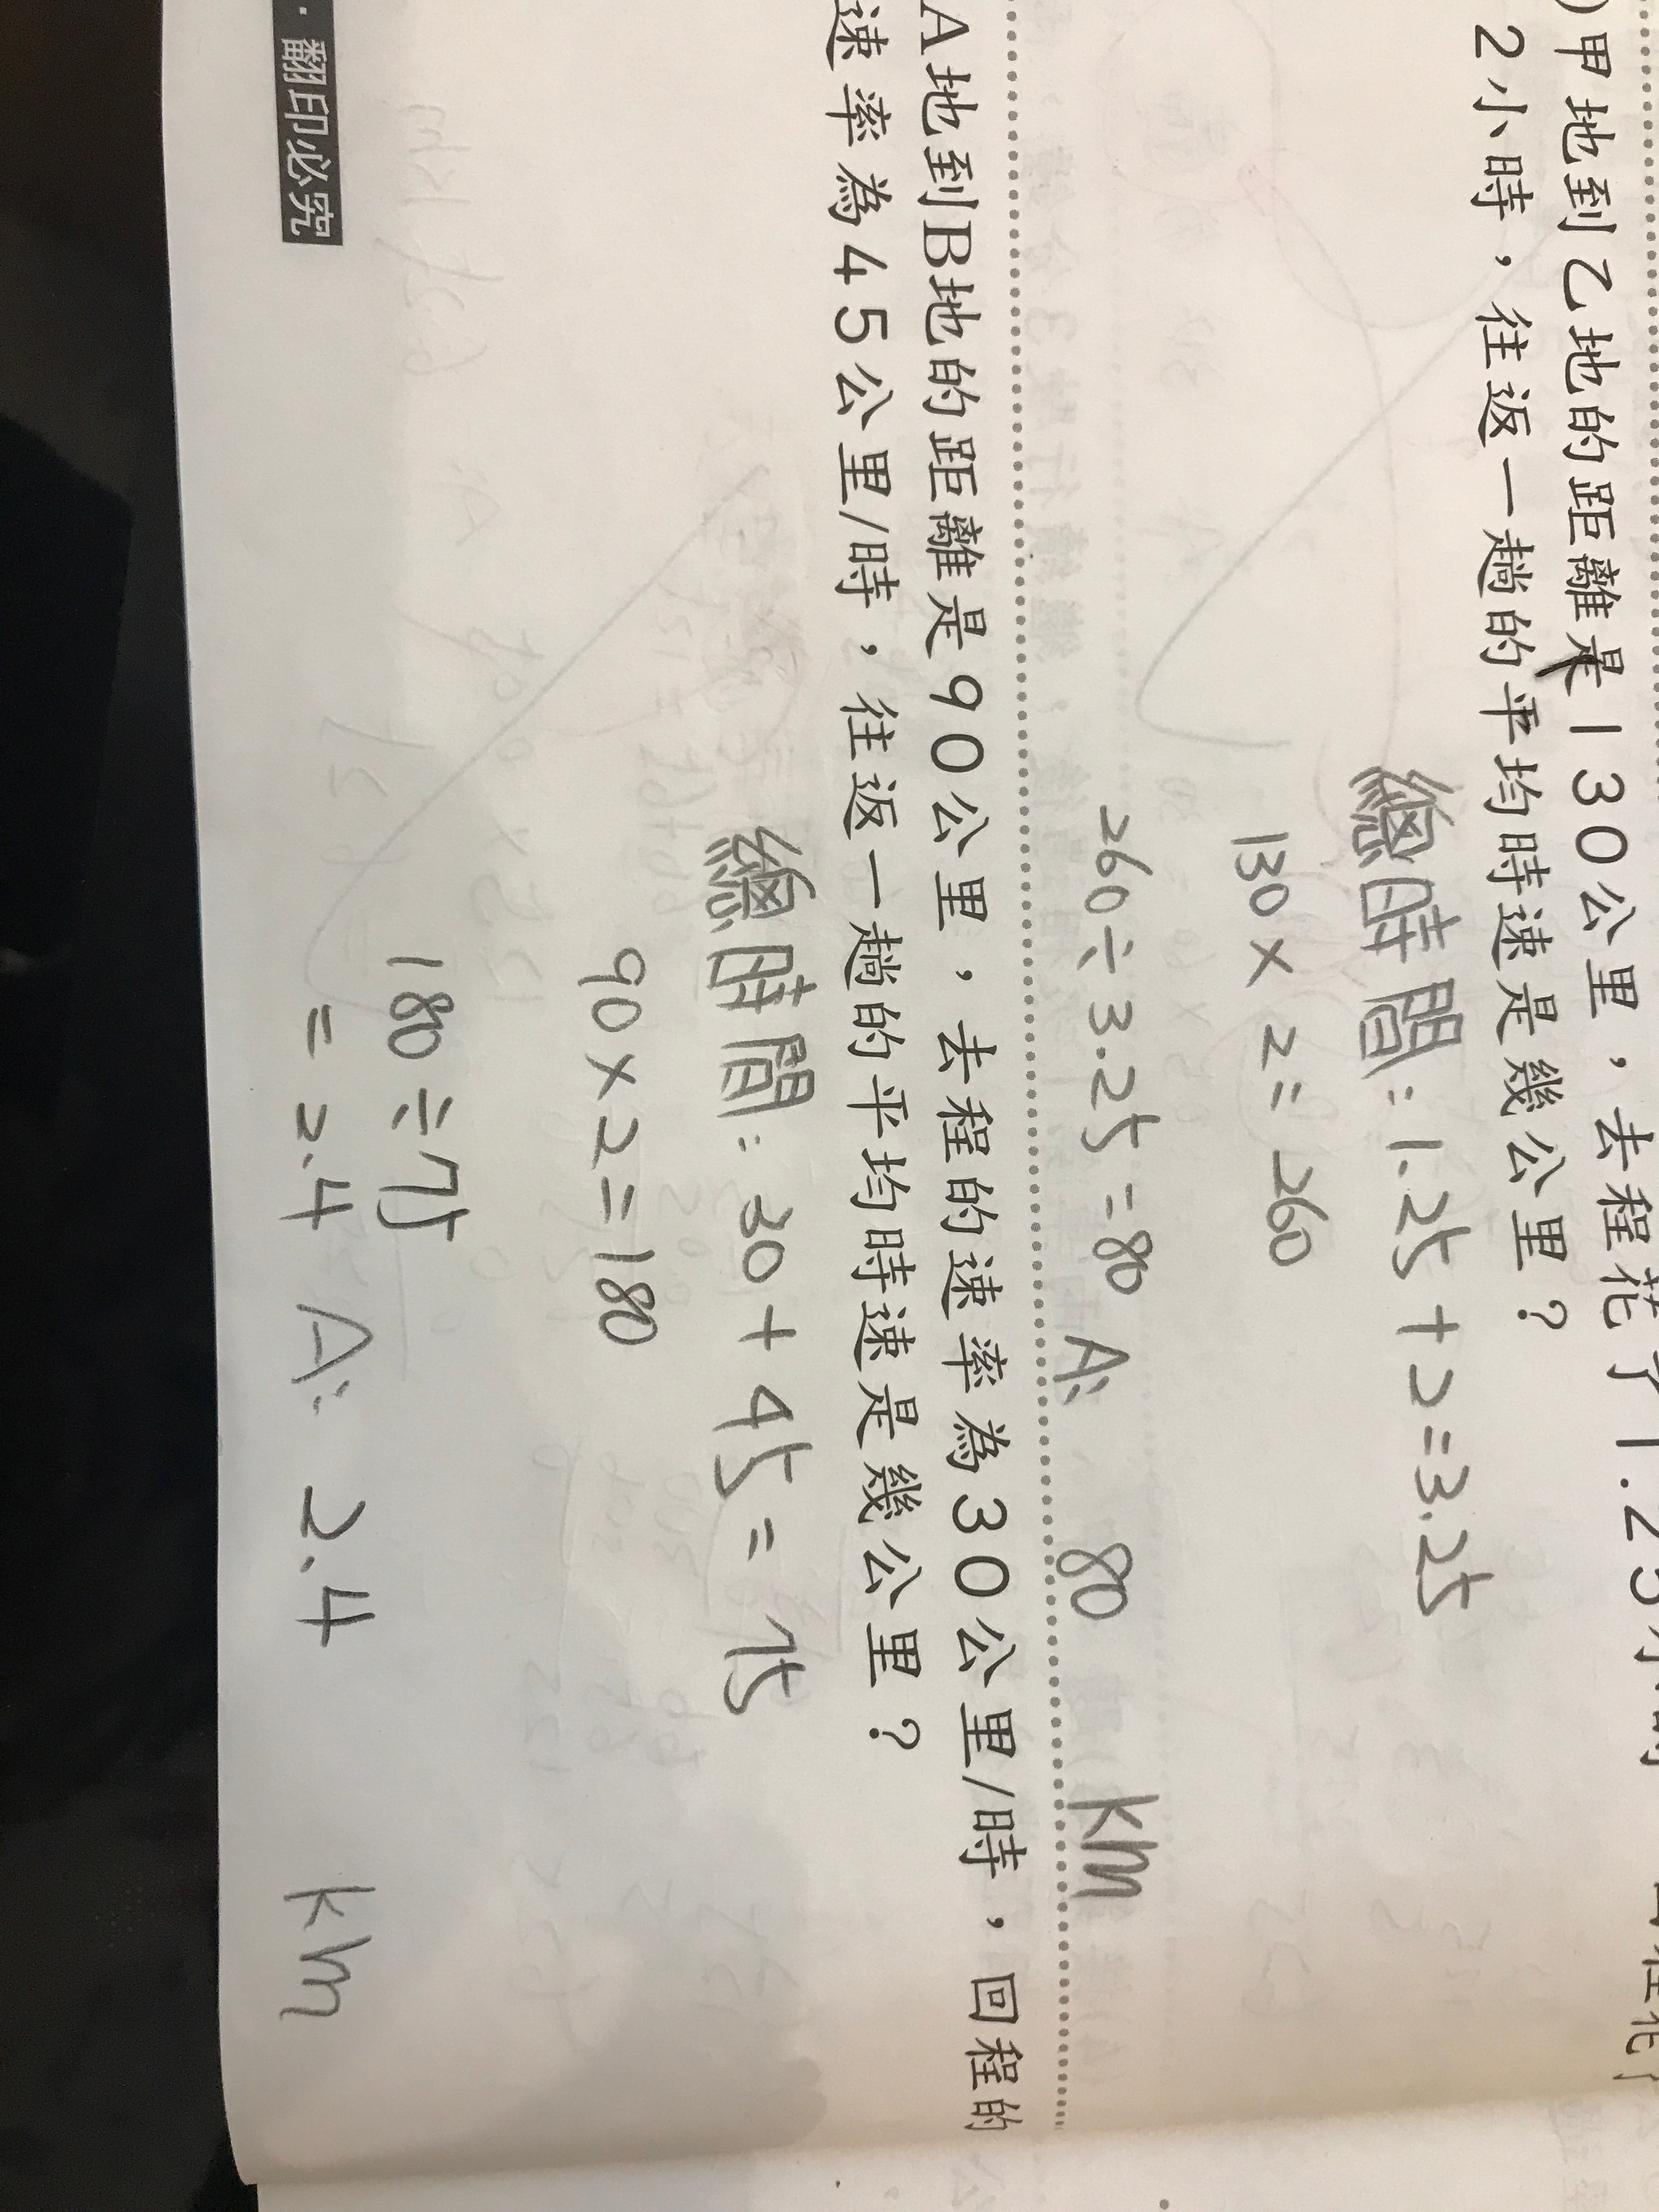 )甲地到乙地的距離是130公里，去程花了1.25小時
2小時，往返一趟的平均時速是幾公里？
總時間：1.25+2=3.25
130×2=260
260÷3.25=80 A: 80 km
A地到B地的距離是90公里，去程的速率為30公里/時，回程的
速率為45公里/時，往返一趟的平均時速是幾公里？
總時間：30+45=75
90×2=180
180÷75
=2.4 A: 2.4 km
·翻印必究